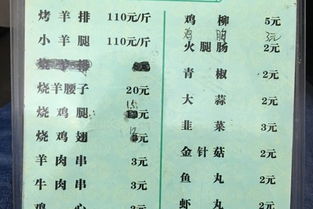 烤羊排 110元/斤
小羊腿 110元/斤
烧羊腰子 20元
烧鸡腿 15元
烧鸡翅
羊肉串 3元
牛肉串 3元
鸡心 2元
鸡柳 5元
鸡 3元
火腿肠 2元
青椒 2元
大蒜 2元
韭菜 3元
金针菇 2元
鱼丸 2元
虾丸 2元